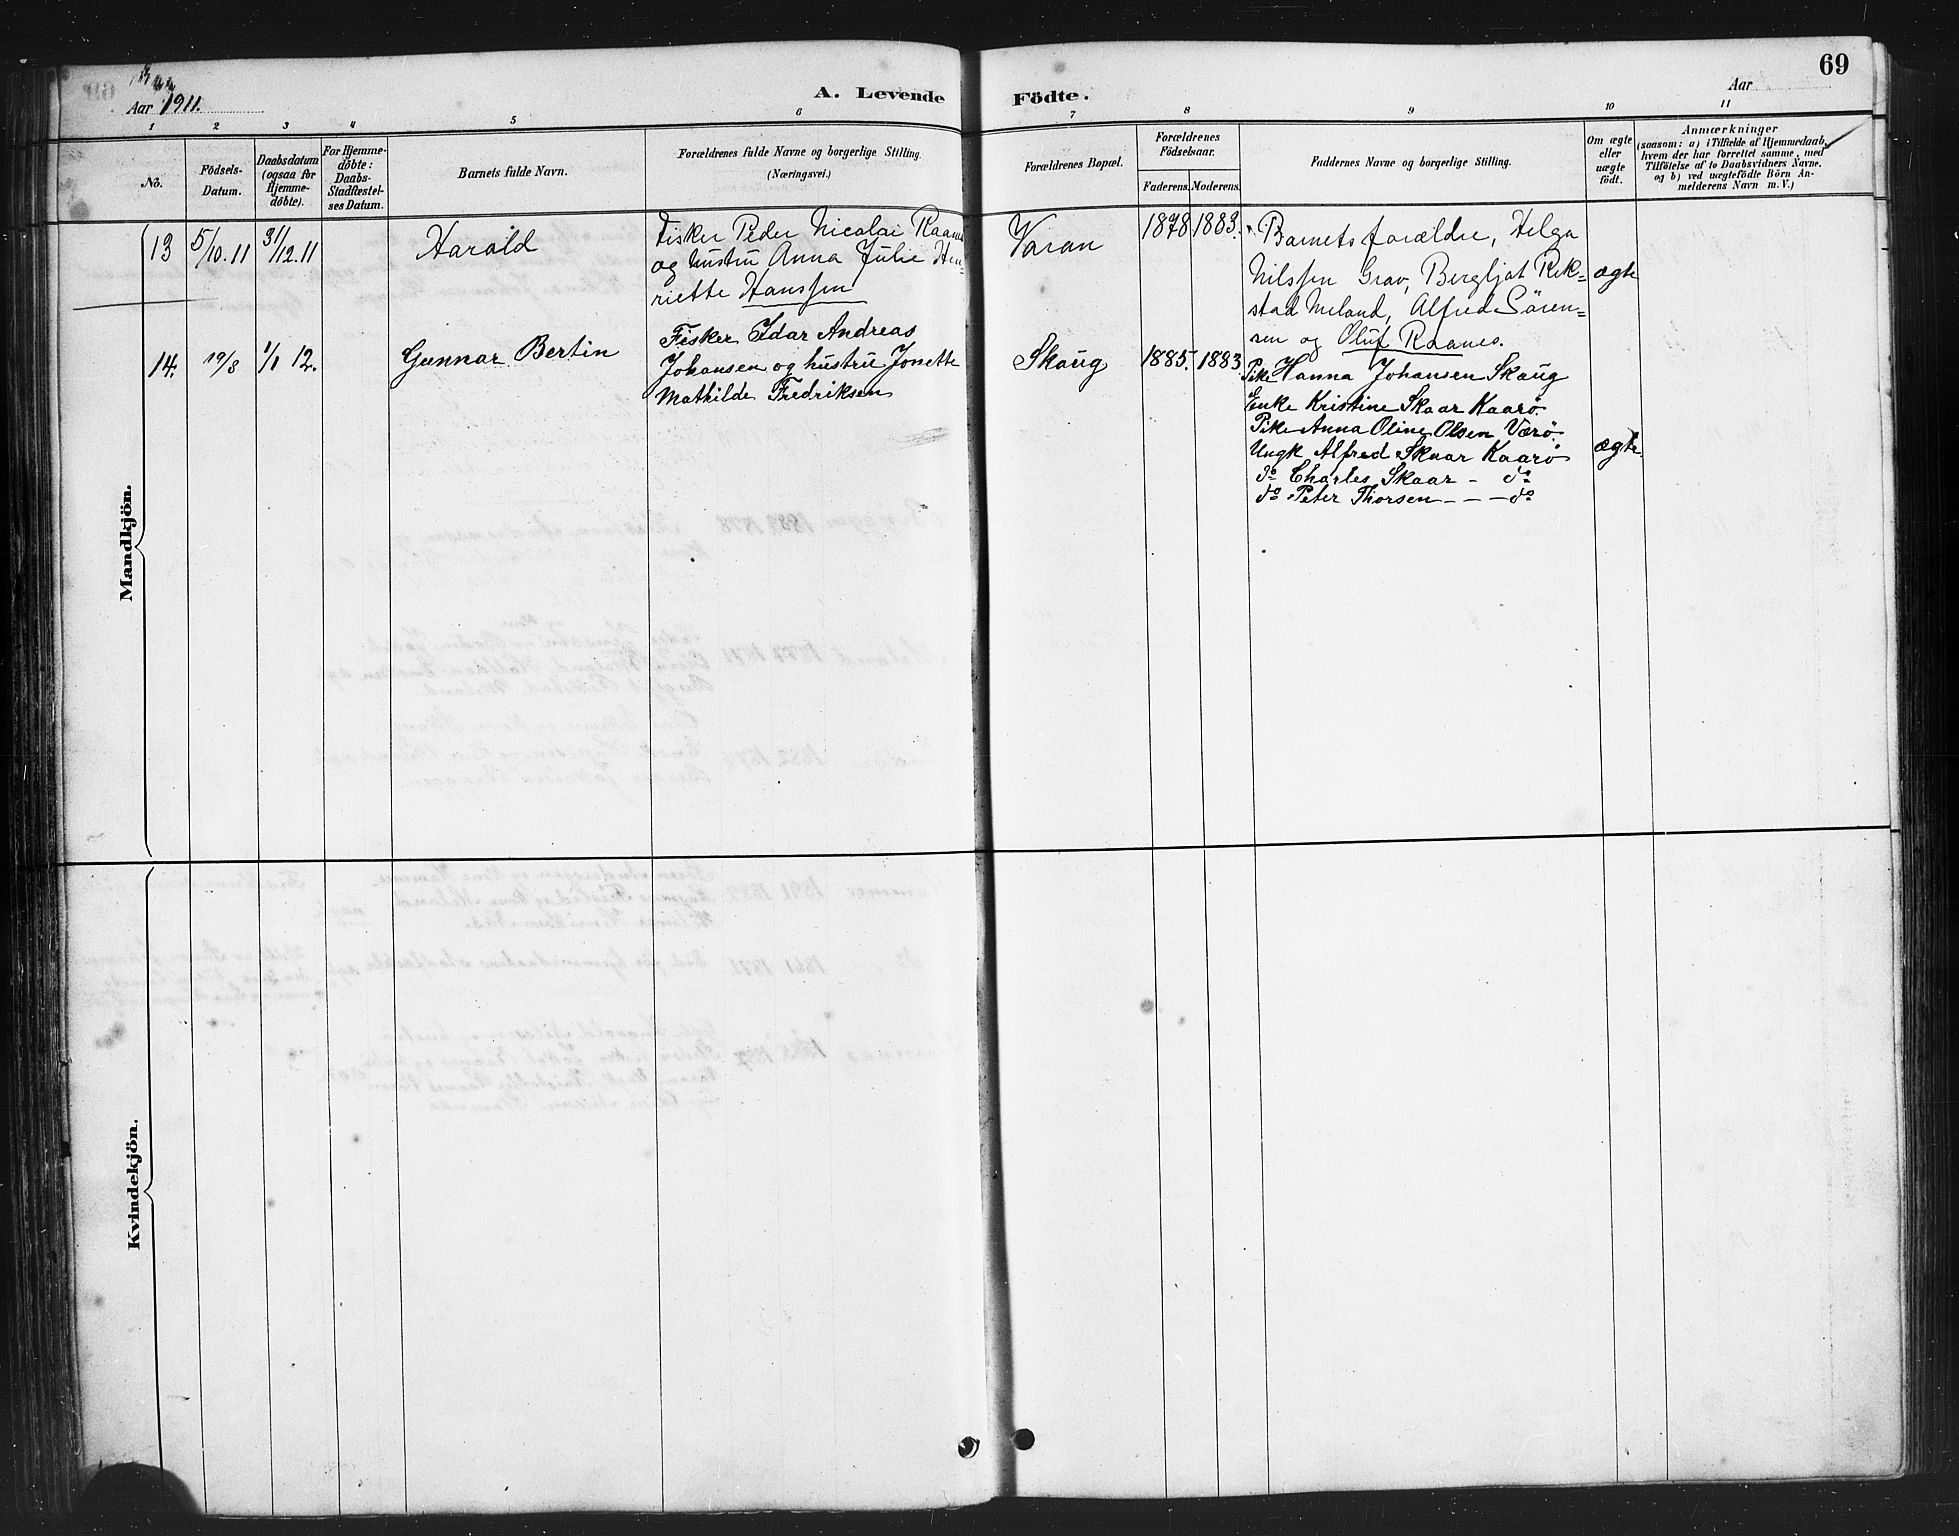 Aar 1911.
A. Levende
1 2 3 4 5 6
No.
Födsels-
Datum.
Daabsdatum
(ogsaa for
Hjemme-
döbte).
For Hjemme-
døbte:
Daabs-
Stadfæstel-
ses Datum.
Barnets fulde Navn.
Forældrenes fulde Navne og borgerlige Stilling.
(Næringsvei.)
Mandkjön.
13 5/10.11 31/12.11 Harald
Fisker Peder Nicolai Raanes
og hustru Anna Julie Hen-
riette Hanssen
14. 19/8 1/1 12. Gunnar Bertin
Fisker Idar Andreas
Johansen og hustru Jonette
Mathilde Fredriksen
Kvindekjön.
69
Födte.
Aar
7 8 9 10 11
Forældrenes Bopæl.
Forældrenes
Födselsaar.
Faderens. Moderens.
Faddernes Navne og borgerlige Stilling.
Om ægte
eller
uægte
født.
Anmærkninger
(saasom: a) i Tilfælde af Hjemmedaab,
hvem der har forrettet samme, med
Tilföielse af to Daabsvidners Navne.
og b) ved uægtefödte Börn An-
melderens Navn m. V.)
Varan 1878 1883.
Barnets forældre, Helga
Nilssen Grav, Bergljot Rek-
stad Meland, Alfred Sören-
sen og Oluf Raanes.
ægte
Skaug 1885. 1883
Pike Hanna Johansen Skaug
Enke Kristine Skaar Kaarö.
Pike Anna Oline Olsen Værö.
Ungk Alfred Skaar Kaarö
do Charles Skaar - do
do Peter Thorsen - - - do
ægte.